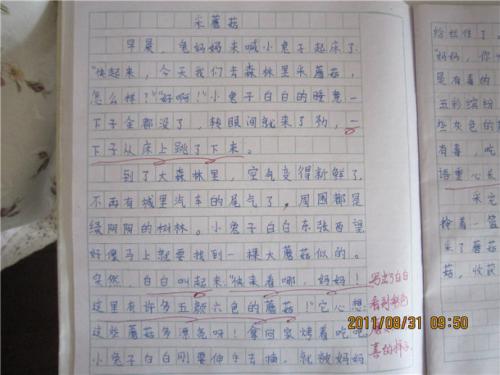 采蘑菇
早晨，兔妈妈来喊小兔子起床了
"快起来，今天我们去森林里采蘑菇，
怎么样？""好啊！"小兔子白白的睡意一
下子全都没了，转眼间就来了劲，一
下子从床上跳了下来。
到了大森林里，空气变得新鲜了，
不再有城里汽车的尾气了，周围都是
绿阴阴的树林。小兔子白白东张西望
好像马上就要找到一棵大蘑菇似的。
突然，白白叫起来"快来看哪，妈妈！
这里有许多五颜六色的蘑菇！"它心想
这些蘑菇多漂亮呀！拿回家烤着吃吧
小兔子白白刚要伸手去摘，就被妈妈
写出了白白
看到彩色
喜的样子
给拦住了。
"妈妈，你
是有毒的
五彩缤纷
些灰色的
有毒，吃
语重心长
采完
拎着篮
采了蘑菇
菇，收获
2011/08/31 09:50